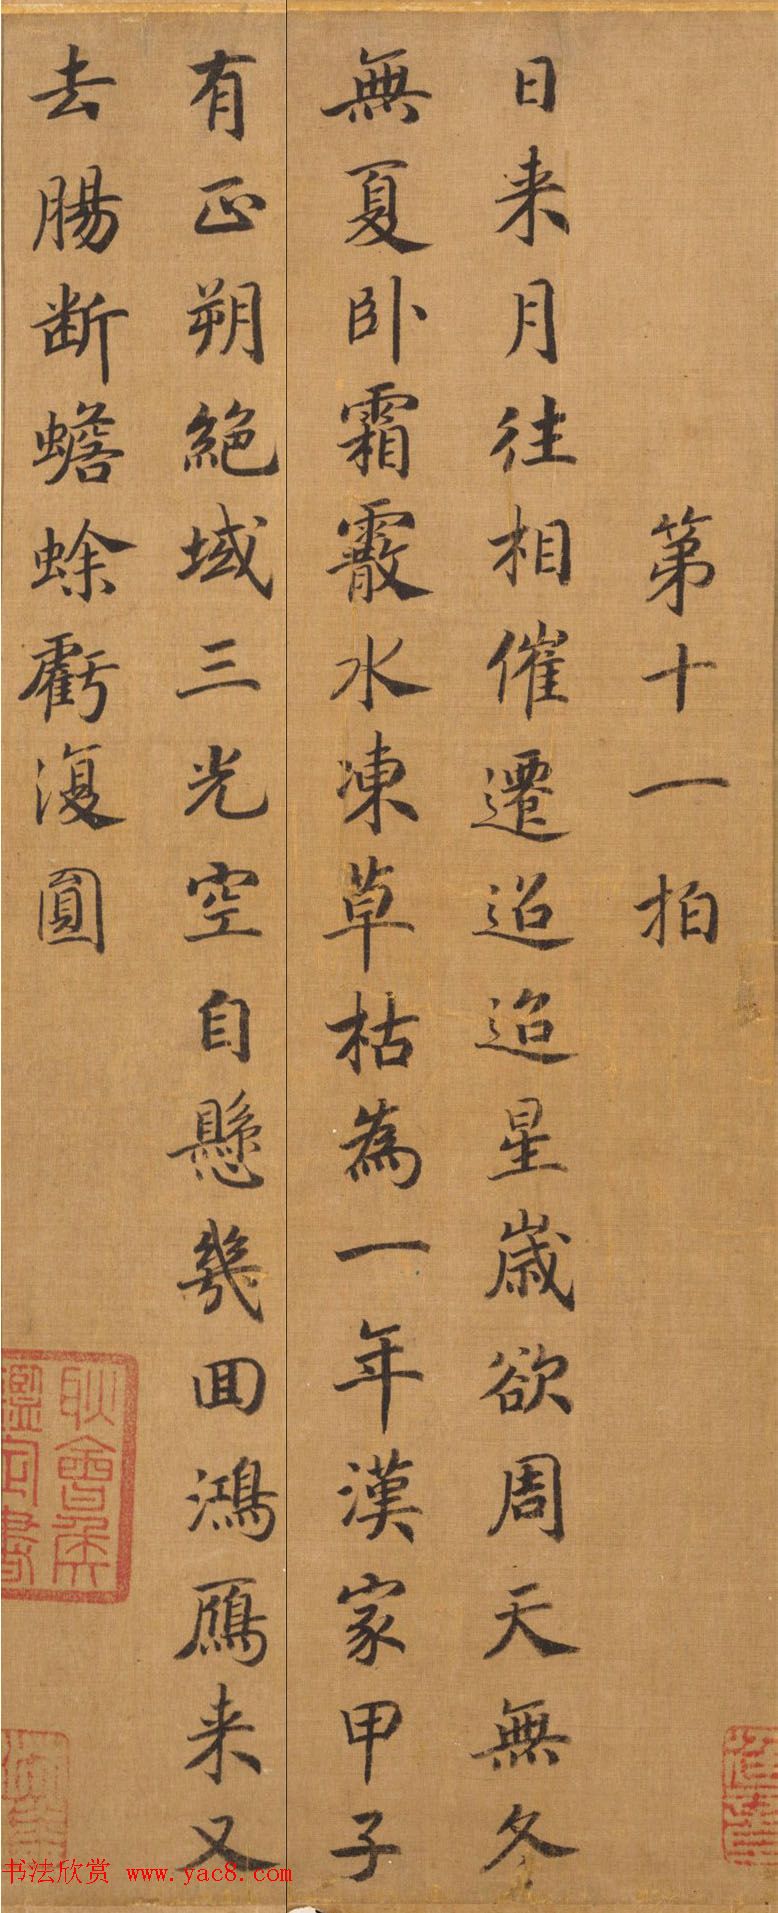 第十一拍
日来月往相催遷迢迢星歳欲周天無冬
無夏卧霜霰水凍草枯為一年漢家甲子
有正朔絶域三光空自懸幾回鴻鴈来又
去腸断蟾蜍虧復圓
耿會侯
鑑定書
书法欣赏 www.yac8.com